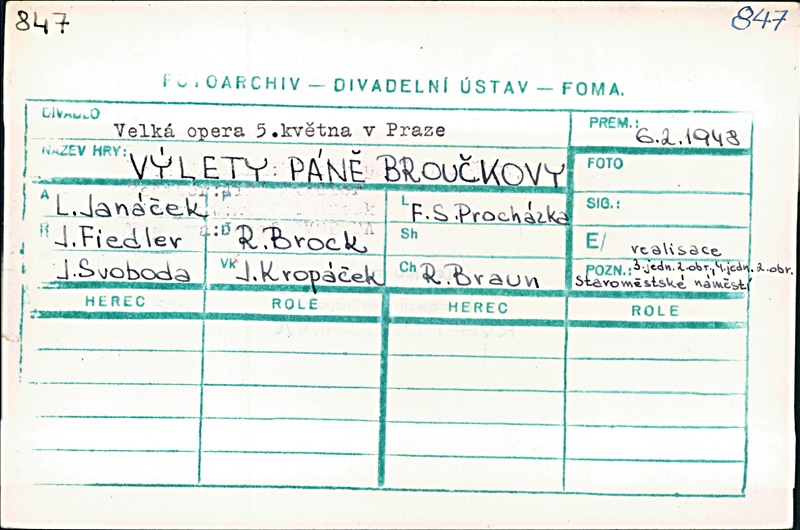 847
847
FOTOARCHIV — DIVADELNÍ ÚSTAV — FOMA.
DIVADLO
Velká opera 5.května v Praze
PREM.:
6.2.1948
NÁZEV HRY:
VÝLETY PÁNĚ BROUČKOVY
FOTO
A L.Janáček
L F.S.Procházka
SIG.:
R J.Fiedler
D R.Brock
Sh
E/ realisace
J.Svoboda
VK J.Kropáček
Ch R.Braun
POZN.: 3.jedn.2.obr., 4.jedn.2.obr.
Staroměstské náměstí
HEREC ROLE HEREC ROLE